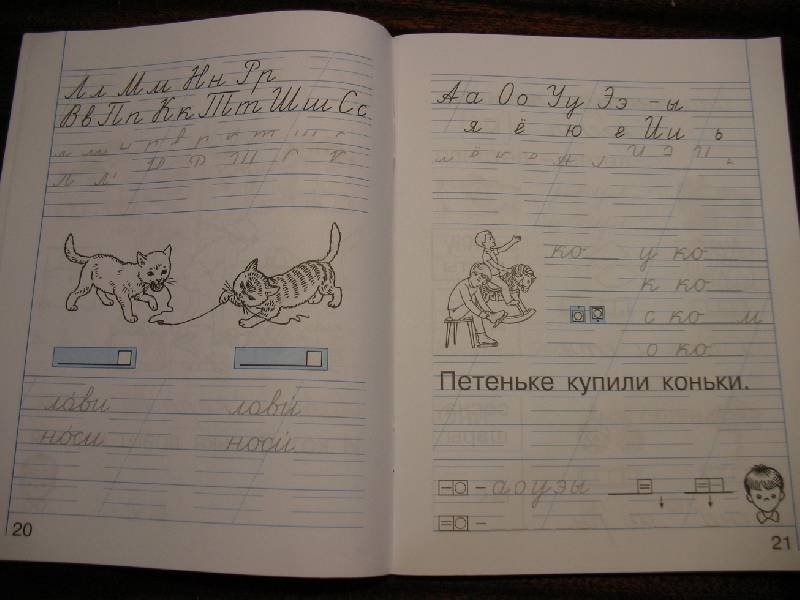 Лл Мм Нн Рр
Вв Пп Кк Тт Шш Сс
ло́ви лови́
но́си носи́
20
Аа Оо Уу Ээ -ы
я ё ю е Ии ь
ко у ко
к ко
с ко м
о ко
Петеньке купили коньки.
– а о у э ы
–
21